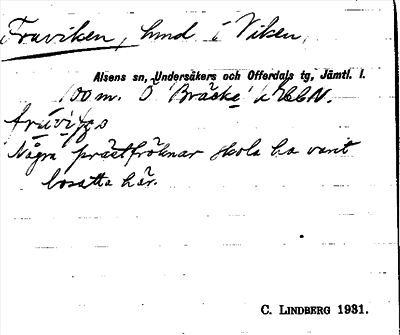 Fruviken, hmd i Viken,
Alsens sn, Undersåkers och Offerdals tg, Jämtl. l.
100 m. O Bräcke
frùvíŋa
Några prästfröknar skola ha varit
bosatta här.
C. LINDBERG 1931.